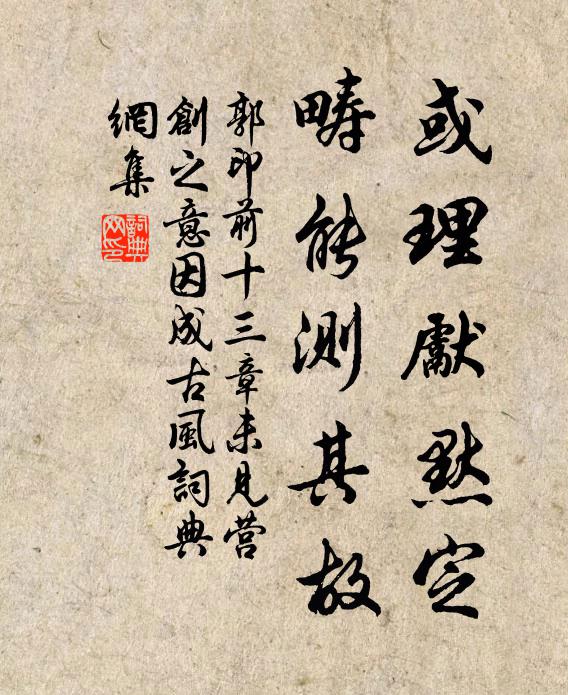 或理獻默定
疇能測其故
郭印前十三章未見營
創之意因成古風詞典
網集
詞典
网印